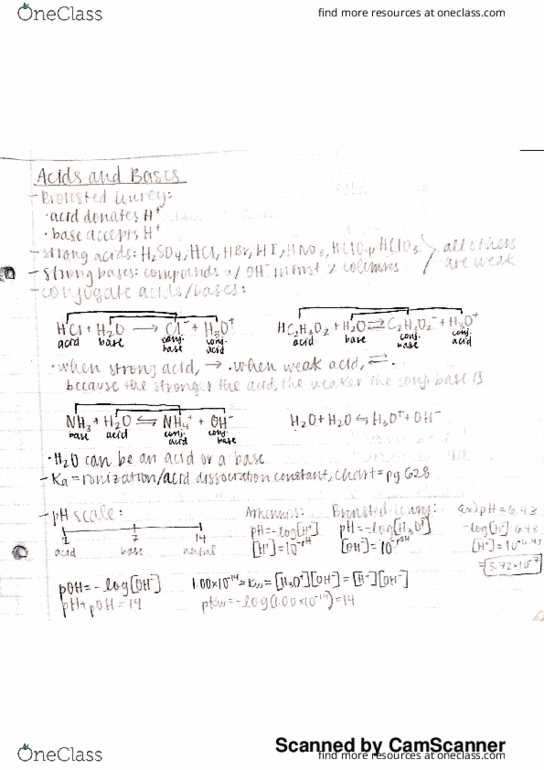 OneClass
find more resources at oneclass.com
Acids and Bases
- Bronsted Lowry:
· acid donates H⁺
· base accepts H⁺
- strong acids: H₂SO₄, HCl, HBr, HI, HNO₃, HClO₄, HClO₃ } all others are weak
- strong bases: compounds w/ OH⁻ in most 2 columns
- conjugate acids/bases:
HCl + H₂O → Cl⁻ + H₃O⁺ HC₂H₃O₂ + H₂O ⇌ C₂H₃O₂⁻ + H₃O⁺
acid base conj. base conj. acid acid base conj. base conj. acid
· when strong acid, →. when weak acid, ⇌.
because the stronger the acid, the weaker the conj. base is
NH₃ + H₂O ⇌ NH₄⁺ + OH⁻ H₂O + H₂O ⇌ H₃O⁺ + OH⁻
base acid conj. acid conj. base
· H₂O can be an acid or a base
- Ka = ionization/acid dissociation constant, chart = pg 628
- pH scale: Arrhenius: Bronsted Lowry: ex) pH = 6.43
1 7 14 pH = -log[H⁺] pH = -log[H₃O⁺] -log[H⁺] = 6.43
acid base neutral [H⁺] = 10^-pH [OH⁻] = 10^-pOH [H⁺] = 10^-6.43
= 3.72×10⁻⁷
pOH = -log[OH⁻] 1.00×10⁻¹⁴ = Kw = [H₃O⁺][OH⁻] = [H⁺][OH⁻]
pH + pOH = 14 pKw = -log(1.00×10⁻¹⁴) = 14
Scanned by CamScanner
OneClass
find more resources at oneclass.com